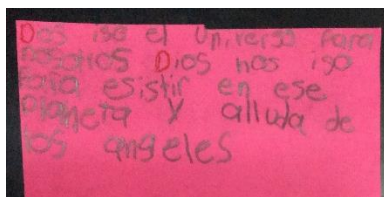 Dos iso el universo para
nosotros Dios nos iso
para esistir en ese
planeta y alluda de
los angeles